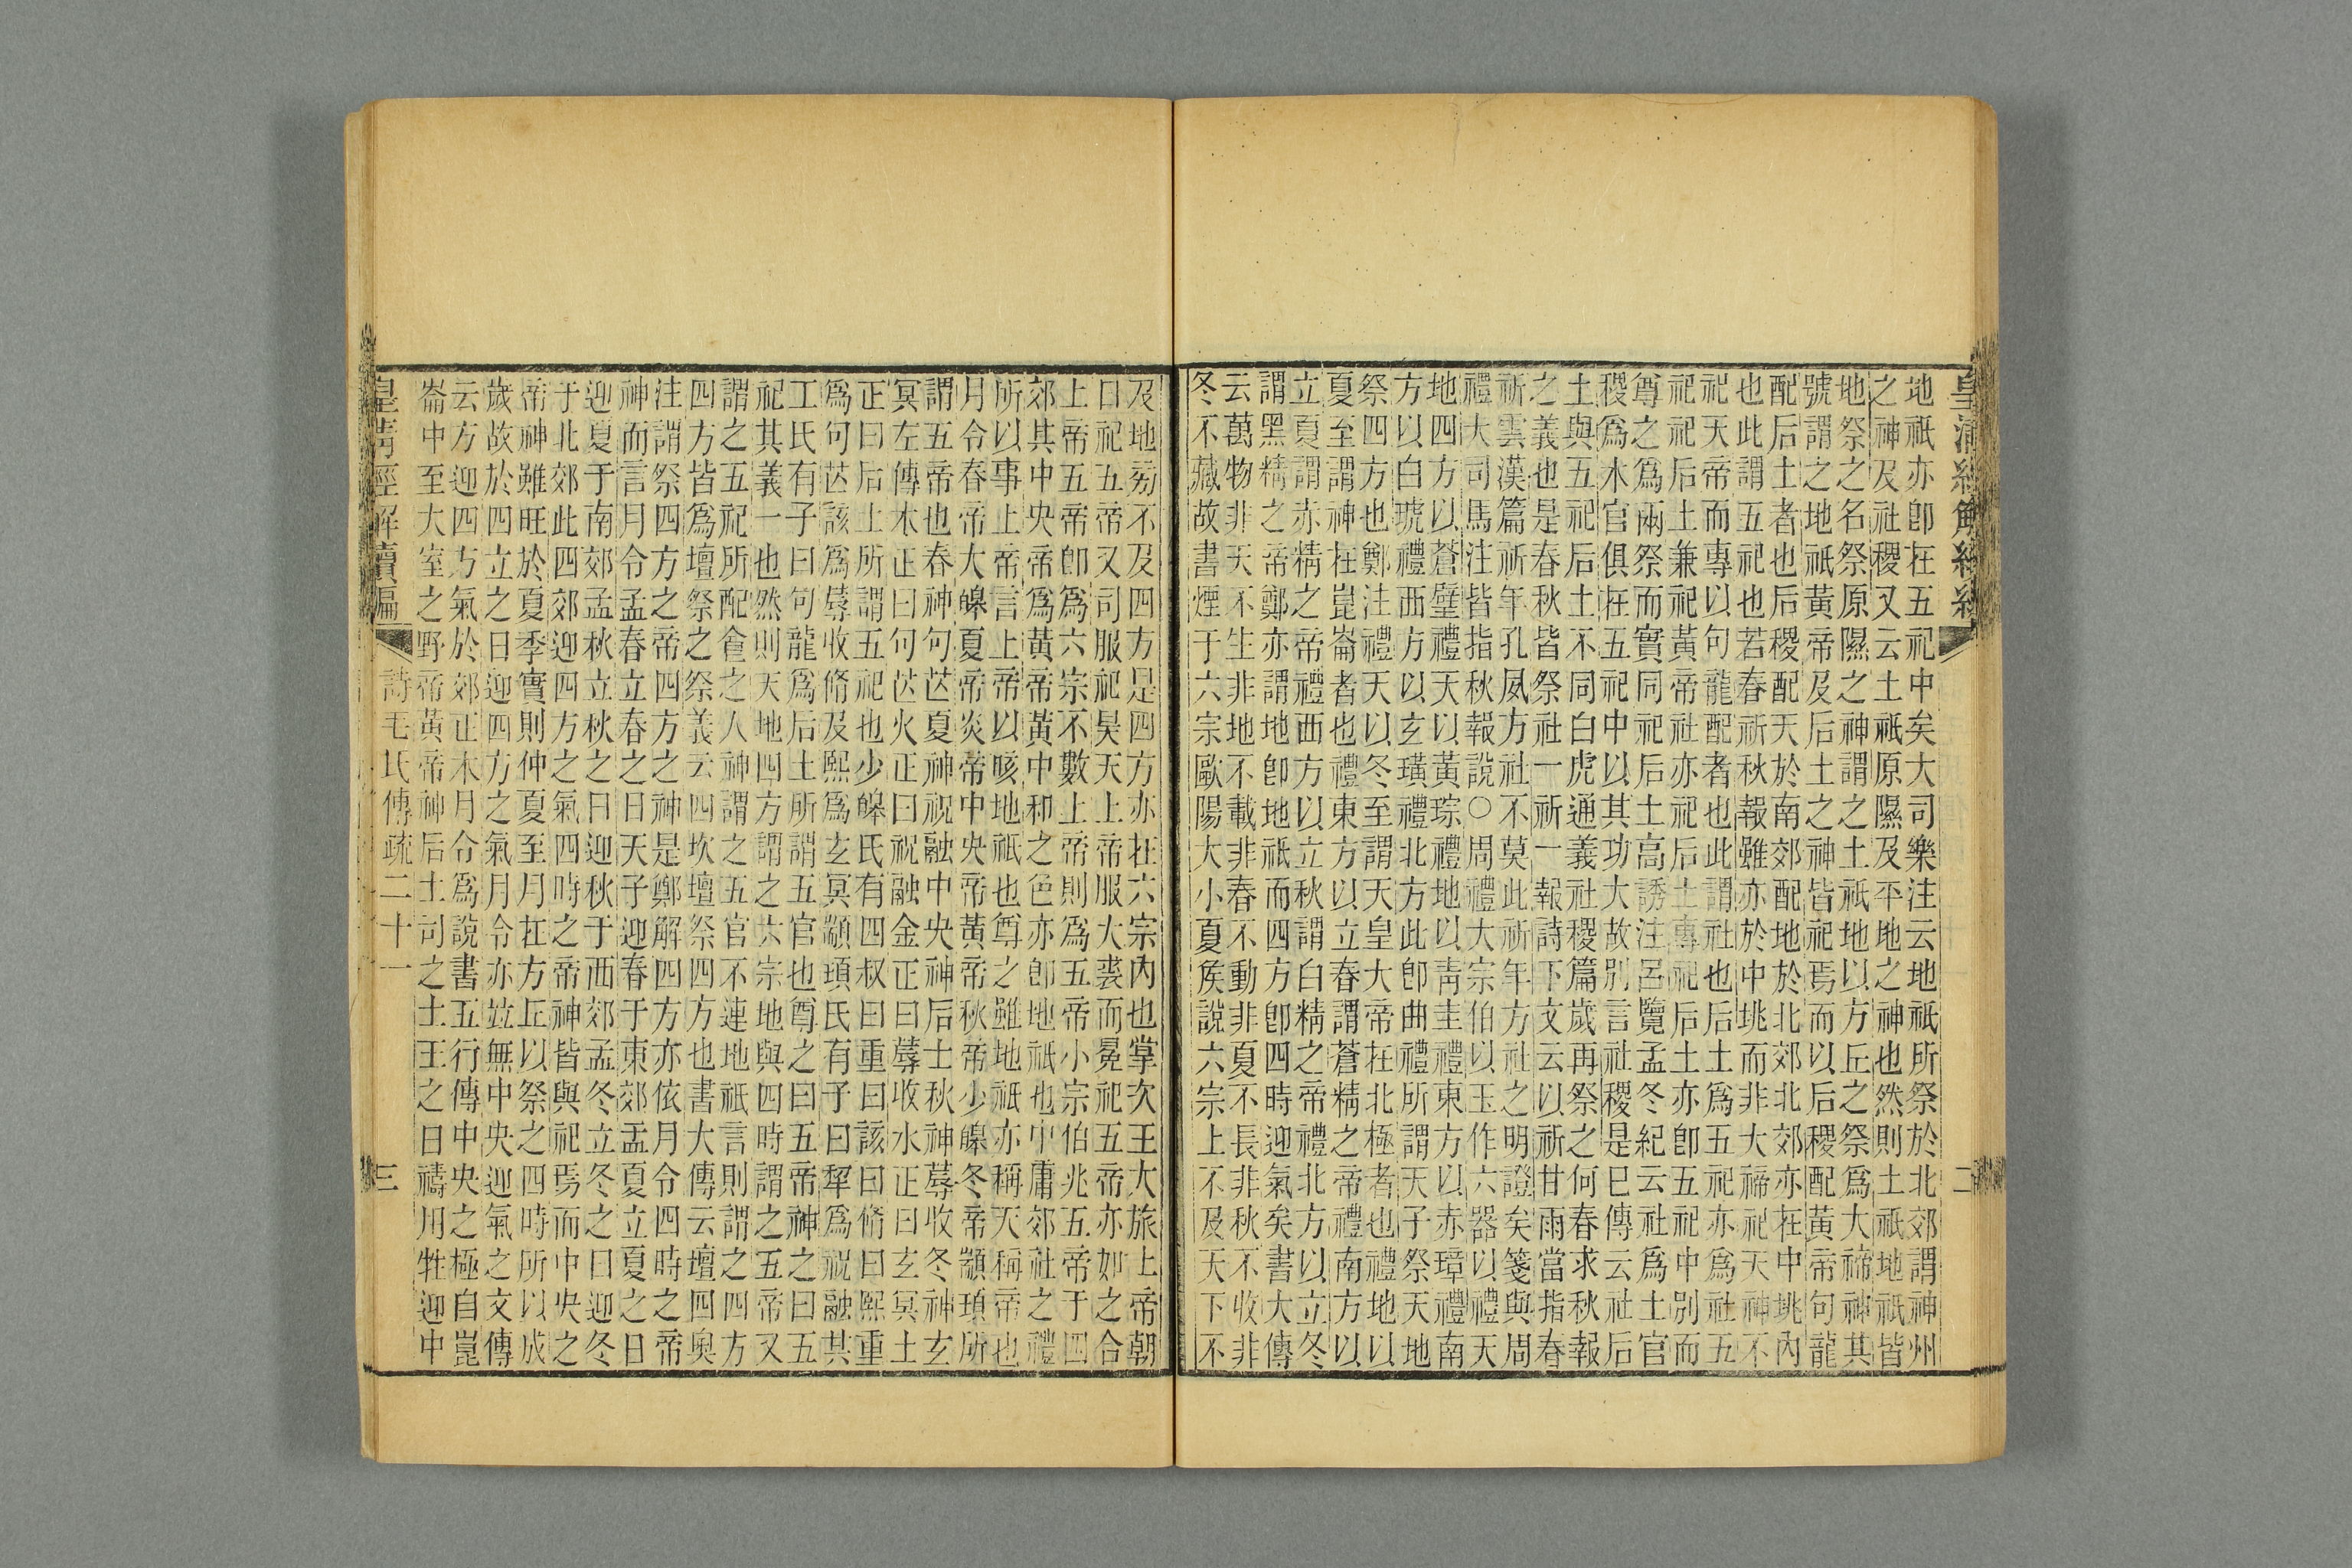 地祇亦卽在五祀中矣大司樂注云地祇所祭於北郊謂神州
之神及社稷又云土祇原隰及平地之神也然則土祇地祇皆
地祭之名祭原隰之神謂之土祇地以方丘之祭爲大禘神其
號謂之地祇黃帝及后土之神皆祀焉而以后稷配黃帝句龍
配后土者也后稷配天於南郊配地於北郊北郊亦在中垗內
也此謂五祀也若春祈秋報雖亦於中垗而非大禘祀天神不
祀天帝而專以句龍配者也此謂社也后土爲五祀亦爲社五
祀祀后土兼祀黃帝社亦祀后土專祀后土亦卽五祀中別而
尊之爲兩祭而實同祀后土高誘注呂覽孟冬紀云社爲土官
稷爲木官俱在五祀中以其功大故別言社稷是巳傳云社后
土與五祀后土不同白虎通義社稷篇歲再祭之何春求秋報
之義也是春秋皆祭社一祈一報詩下文云以祈甘雨當指春
祈雲漢篇祈年孔夙方社不莫此祈年方社之明證矣箋與周
禮大司馬注皆指秋報說○周禮大宗伯以玉作六器以禮天
地四方以蒼璧禮天以黃琮禮地以靑圭禮東方以赤璋禮南
方以白琥禮西方以玄璜禮北方此卽曲禮所謂天子祭天地
祭四方也鄭注禮天以冬至謂天皇大帝在北極者也禮地以
夏至謂神在崑崙者也禮東方以立春謂蒼精之帝禮南方以
立夏謂赤精之帝禮西方以立秋謂白精之帝禮北方以立冬
謂黑精之帝鄭亦謂地卽地祇而四方卽四時迎氣矣書大傳
云萬物非天不生非地不載非春不動非夏不長非秋不收非
冬不藏故書煙于六宗歐陽大小夏侯說六宗上不及天下不
及地旁不及四方是四方亦在六宗內也掌次王大旅上帝朝
日祀五帝又司服祀昊天上帝服大裘而冕祀五帝亦如之合
上帝五帝卽爲六宗不數上帝則爲五帝小宗伯兆五帝于四
郊其中央帝爲黃帝黃中和之色亦卽地祇也中庸郊社之禮
所以事上帝言上帝以晐地祇也尊之雖地祇亦稱天稱帝也
月令春帝大皥夏帝炎帝中央帝黃帝秋帝少皥冬帝顓頊所
謂五帝也春神句芒夏神祝融中央神后士秋神蓐收冬神玄
冥左傳木正曰句芒火正曰祝融金正曰蓐收水正曰玄冥土
正曰后土所謂五祀也少皥氏有四叔曰重曰該曰脩曰熙重
爲句芒該爲蓐收脩及熙爲玄冥顓頊氏有子曰犂爲祝融共
工氏有子曰句龍爲后土所謂五官也尊之曰五帝神之曰五
祀其義一也然則天地四方謂之六宗地與四時謂之五帝又
謂之五祀所配食之人神謂之五官不連地祇言則謂之四方
四方皆爲壇祭之祭義云四坎壇祭四方也書大傳云壇四奧
注謂祭四方之帝四方之神是鄭解四方亦依月令四時之帝
神而言月令孟春立春之日天子迎春于東郊孟夏立夏之日
迎夏于南郊孟秋立秋之日迎秋于西郊孟冬立冬之日迎冬
于北郊此四郊迎四方之氣四時之帝神皆與祀焉而中央之
帝神雖旺於夏季實則仲夏至月在方丘以祭之四時所以成
歲故於四立之日迎四方之氣月令亦竝無中央迎氣之文傳
云方迎四方氣於郊正本月令爲說書五行傳中央之極自崑
崙中至大室之野帝黃帝神后土司之土王之日禱用牲迎中
皇淸經解續編 詩毛氏傳疏二十一 三